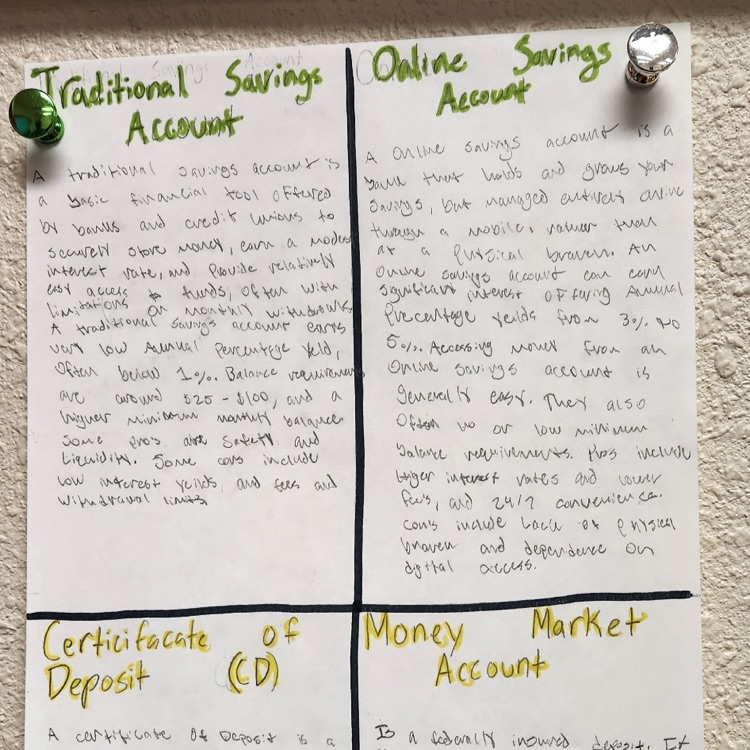 Traditional Savings
Account
A traditional savings account is
a basic financial tool offered
by banks and credit unions to
securely store money, earn a modest
interest rate, and provide relatively
easy access to funds, often with
limitations on monthly withdrawals
A traditional savings account earns
very low Annual Percentage Yeld,
Often below 1%. Balance requirements
are around $25 - $100, and a
higher minimum monthly balance
Some Pros are Safety and
Liquidity. Some cons include
low interest yeilds, and fees and
withdrawal limits
Online Savings
Account
A Online savings account is a
bank that holds and grows your
savings, but managed entirely online
through a mobile, rather than
at a physical An
Online savings account can earn
significant interest offering Annual
Precentage yeilds from 3% to
5%. Accessing money from an
Online savings account is
generally easy. They also
Often no or low minimum
balance requirements. Pros include
bigger interest rates and lower
fees, and 24/7 convenience.
cons include lack of physical
and dependence on
digital access.
Certicifacate of
Deposit (CD)
A certificate Of Deposit is a
Money Market
Account
Is a federally insured deposit. It